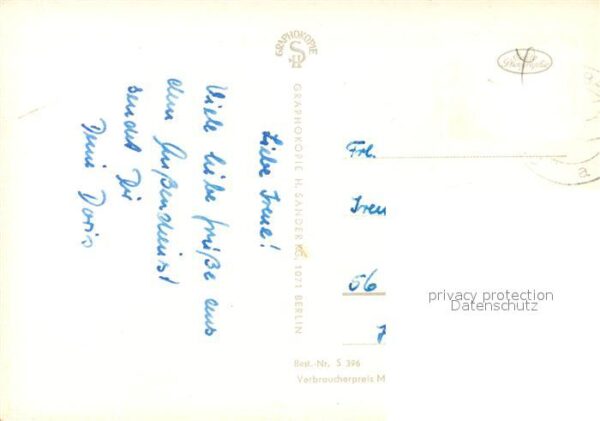 Liebe Irene!
Viele liebe Grüße aus
dem Außendienst
sendet Dir
Deine Doris
GRAPHOKOPIE
GRAPHOKOPIE H. SANDER KG, 1071 BERLIN
Frl.
Iren
56
privacy protection
Datenschutz
Best.-Nr. S 396
Verbraucherpreis M